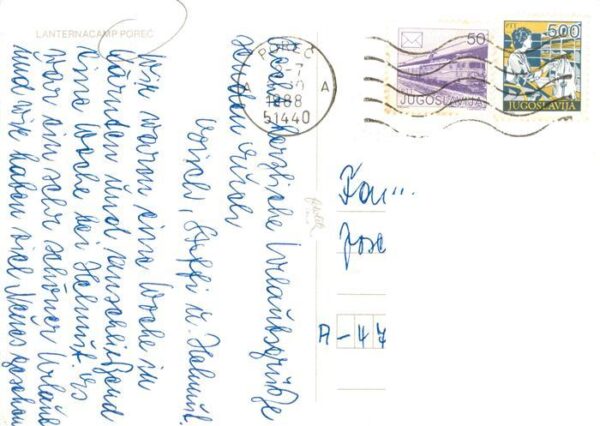 LANTERNACAMP POREČ
POREČ
1988
A A
51440
50
JUGOSLAVIJA
PTT
500
JUGOSLAVIJA
herzliche Urlaubsgrüße
senden Euch,
Steffi u. Helmut.
Wir waren eine Woche in
Kärnten und anschließend
eine Woche bei Helmut. Es
war ein sehr schöner Urlaub
und wir haben viel Neues gesehen
Fam...
Jose
A-47